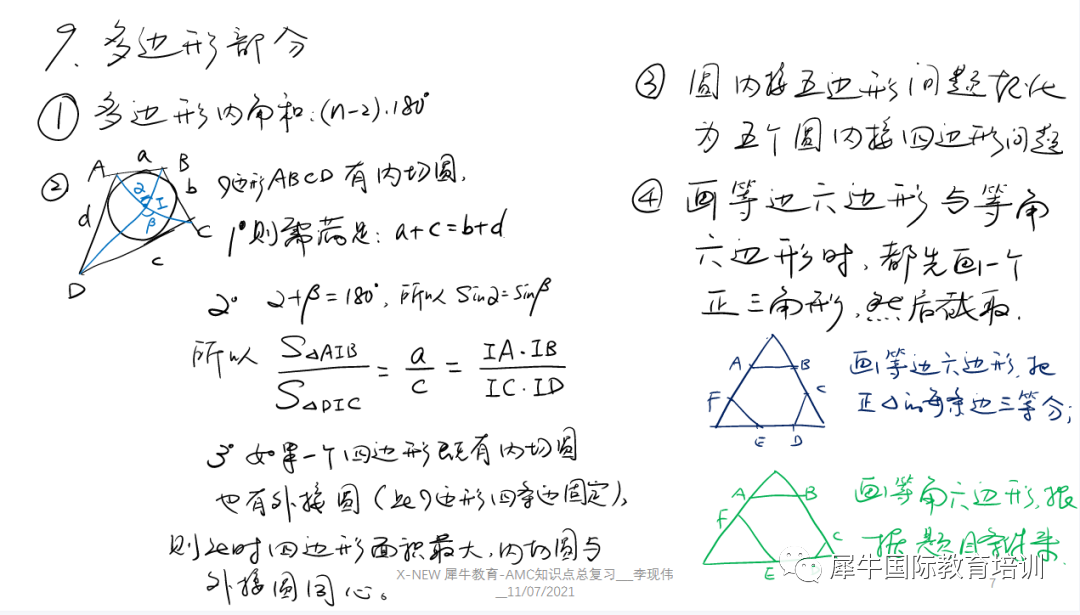 9. 多边形部分
① 多边形内角和:(n-2)·180°
②
A a B
b
2 I
d β C
c
D
四边形ABCD有内切圆,
1°则需满足: a+c=b+d
2° 2+β=180°, 所以 Sin2=Sinβ
所以 S△AIB / S△DIC = a / c = IA·IB / IC·ID
3° 如果一个四边形既有内切圆
也有外接圆(此四边形四条边固定),
则此时四边形面积最大,内切圆与
外接圆同心。
③ 圆内接五边形问题转化
为五个圆内接四边形问题
④ 画等边六边形与等角
六边形时,都先画一个
正三角形,然后截取.
A B
F C
E D
画等边六边形,把
正△的每条边三等分;
A B
F C
E
画等角六边形,根
据题目条件来
X-NEW 犀牛教育-AMC知识点总复习__李现伟
__11/07/2021
犀牛国际教育培训